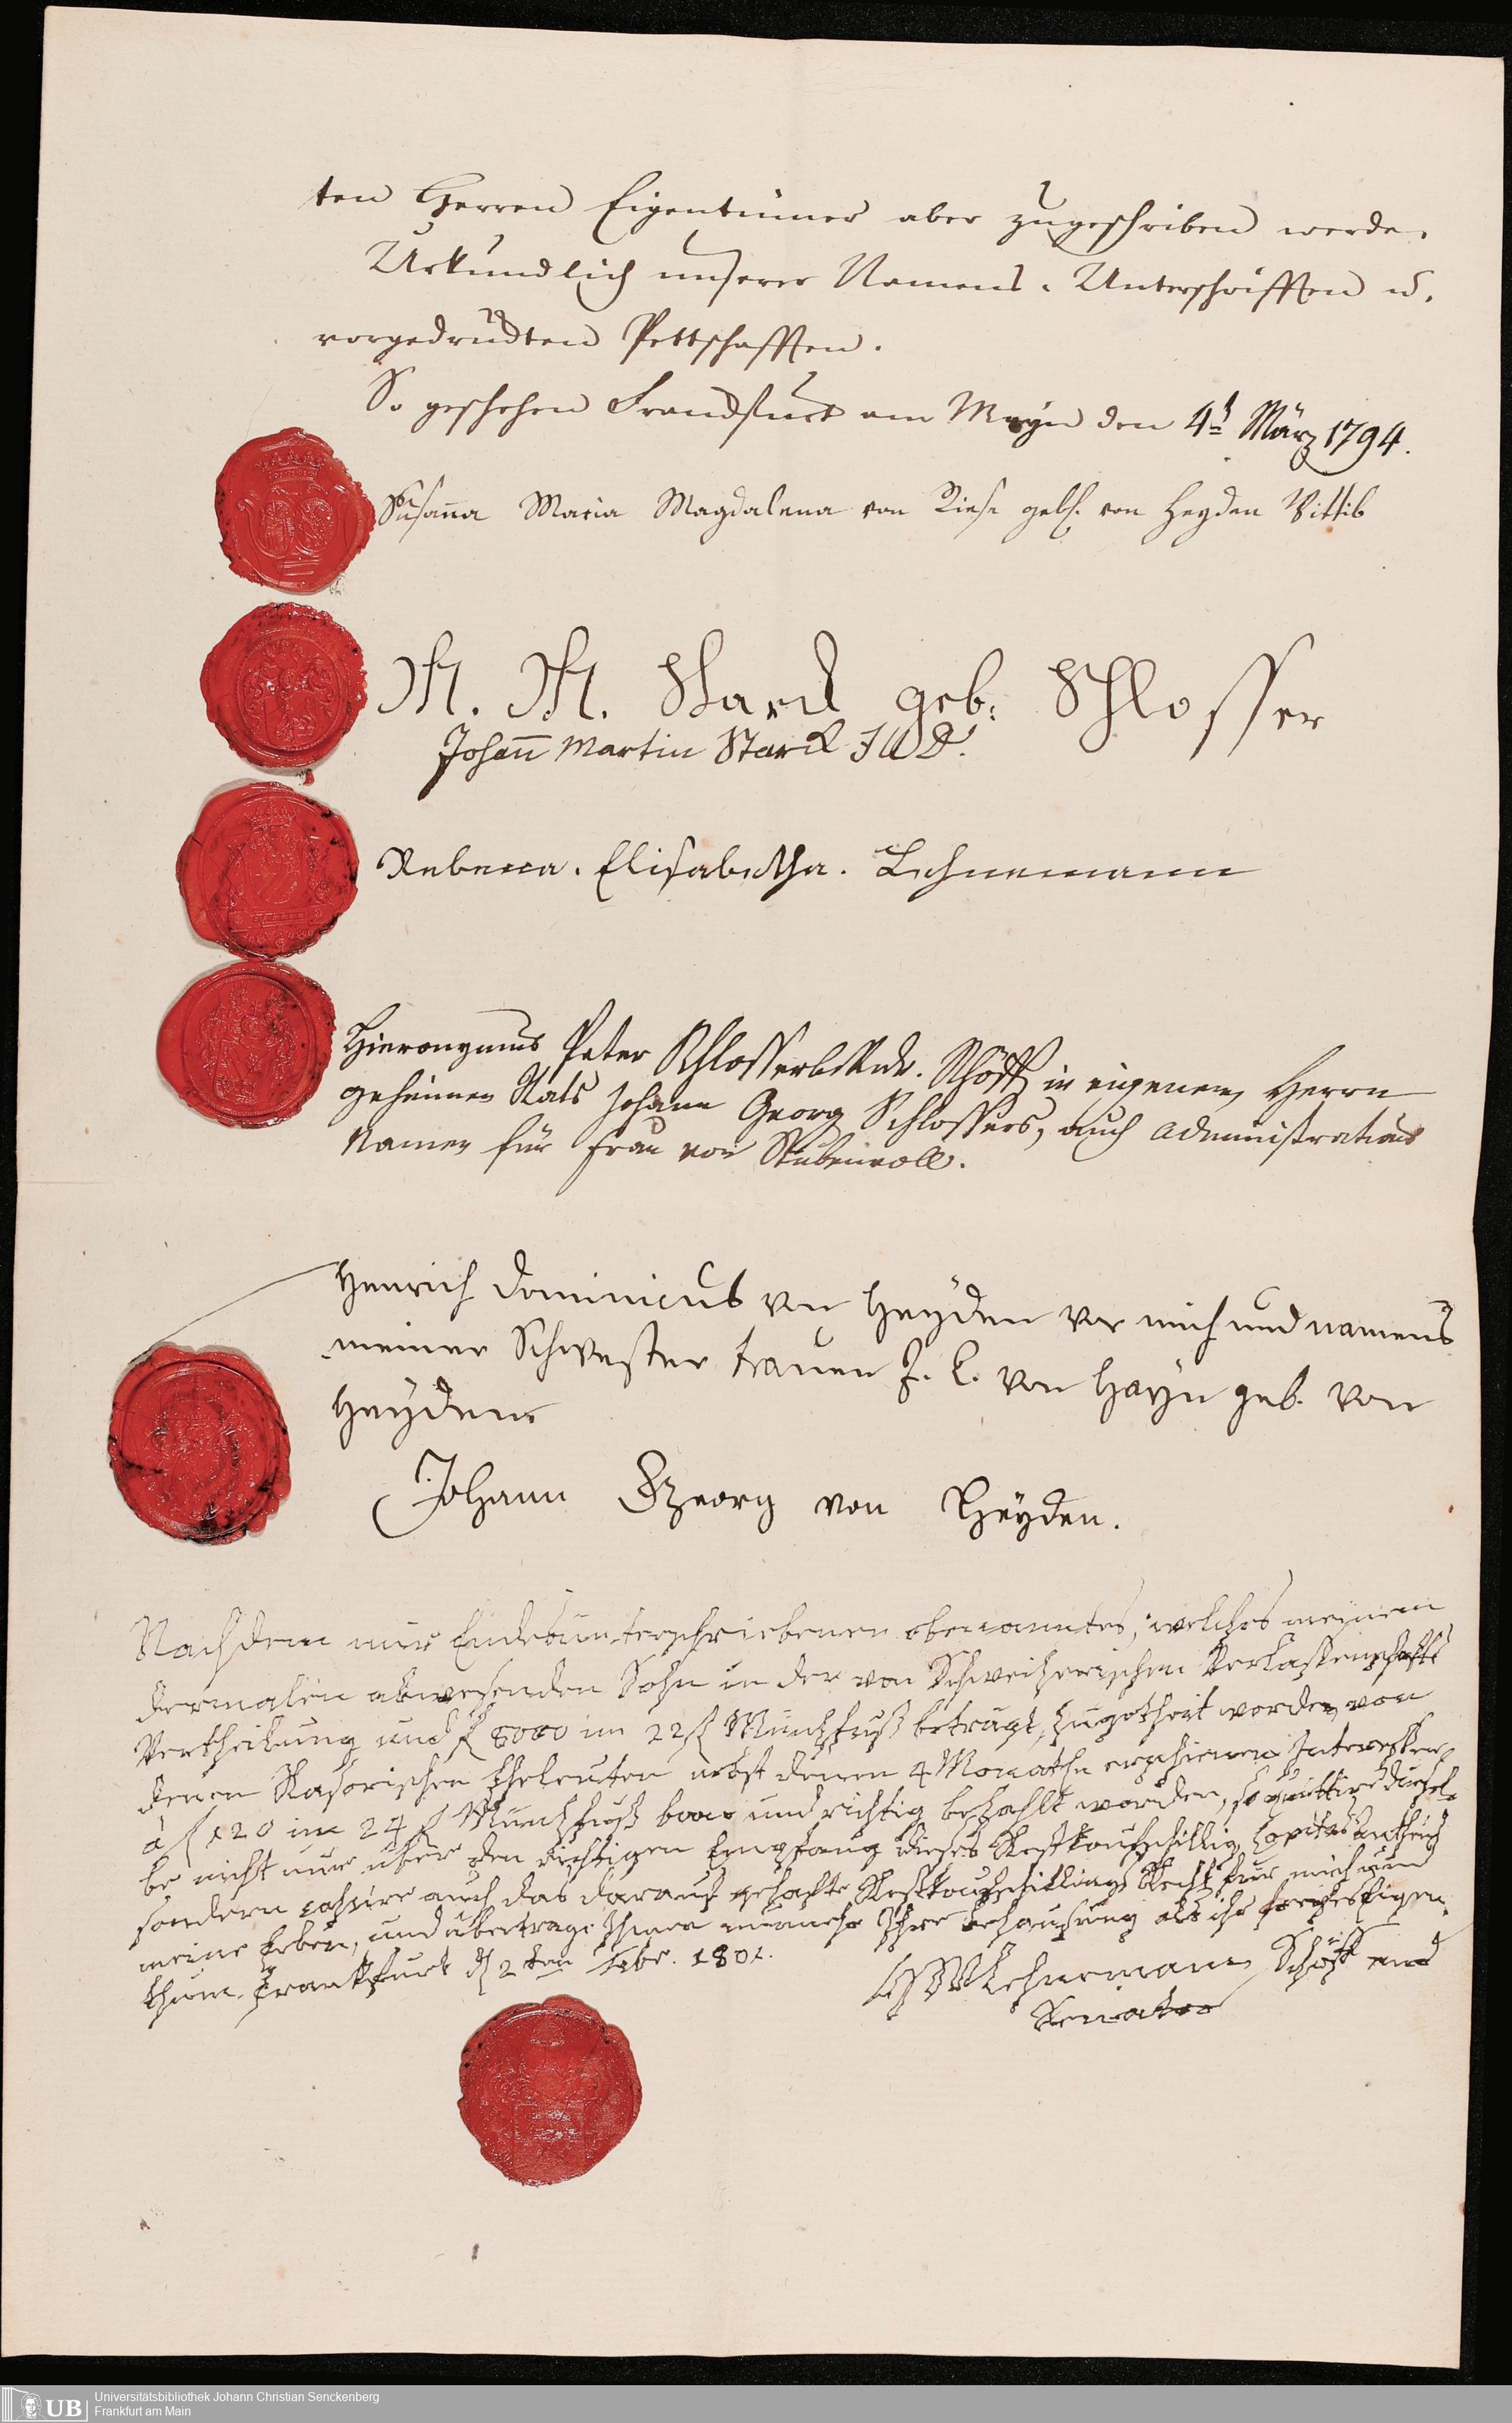 ten Herren Eigentümer aber zugeschriben werde.
Urkundlich unserer Namens-Unterschrifften u.
vorgedruckten Pettschafften.
So geschehen Franckfurt am Mayn den 4t März 1794.
Susanna Maria Magdalena von Riese gebh. von Heyden Wittib
M. M. Starck geb: Schlosser
Johann Martin Starck JUD.
Rebecca. Elisabetha. Lehnemann
Hieronymus Peter Schlosser Schöff in eigenem, Herrn
geheimen Raths Johann Georg Schlossers, auch administrations
Namen für Frau von Stubenvoll.
Henrich Dominicus von Heyden vor mich und namens
meiner Schwester Frauen J. E. von Hayn geb. von
Heyden
Johann Georg von Heyden.
Nachdem mir Endesunterschriebenen obenanntes, welches meinem
dermalen abwesenden Sohn in der von Schweitzerischen Verlassenschafts
Vertheilung und f 5000 im 22 f Müntzfuß beträgt, zugetheilt worden, von
denen Kasorischen Eheleuten nebst denen 4 Monathe erschienen Interessen
à f 120 im 24 f Müntzfuß baar und richtig bezahlt worden, so quittire diesel-
be nicht nur über den richtigen Empfang dieses Restkaufschilling Capital antheils
sondern cassire auch das darauf gehafte Restkaufschillings Recht für mich und
meine Erben, und übertrage Ihnen nunmehr Ihre behaußung als ihr freyes Eigen-
thum. Franckfurt d 2ten Febr. 1801.
Lehnemann, Schöff und
Senator
UB
Universitätsbibliothek Johann Christian Senckenberg
Frankfurt am Main